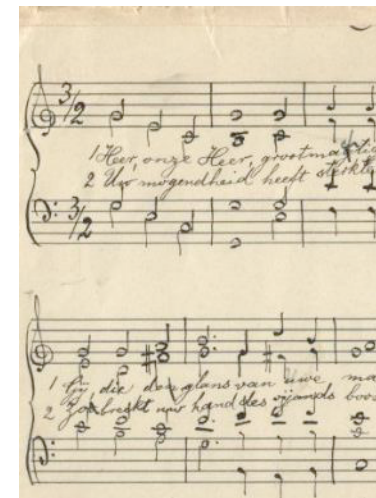 3/2
1 Heer, onze Heer, grootmachtig
2 Uw mogendheid heeft sterkte
3/2
1 Gij die den glans van uwe ma
2 Zoo breekt uw hand des vijands boo